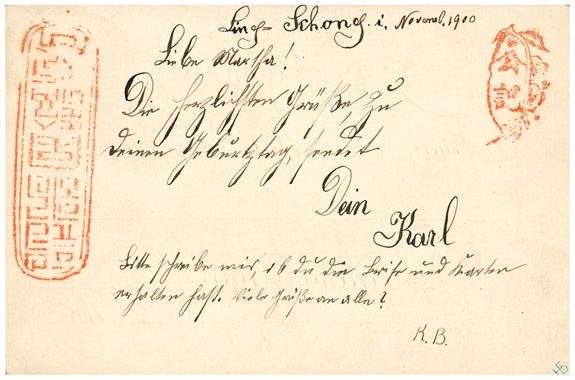 Ling-Schong. i. Novemb. 1900
Liebe Martha!
Die herzlichsten Grüße, zu
deinen Geburtztag, sendet
Dein
Karl
Bitte schreibe mir, ob du die Briefe und Karten
erhalten hast. Viele Grüße an alle?
K. B.
公記